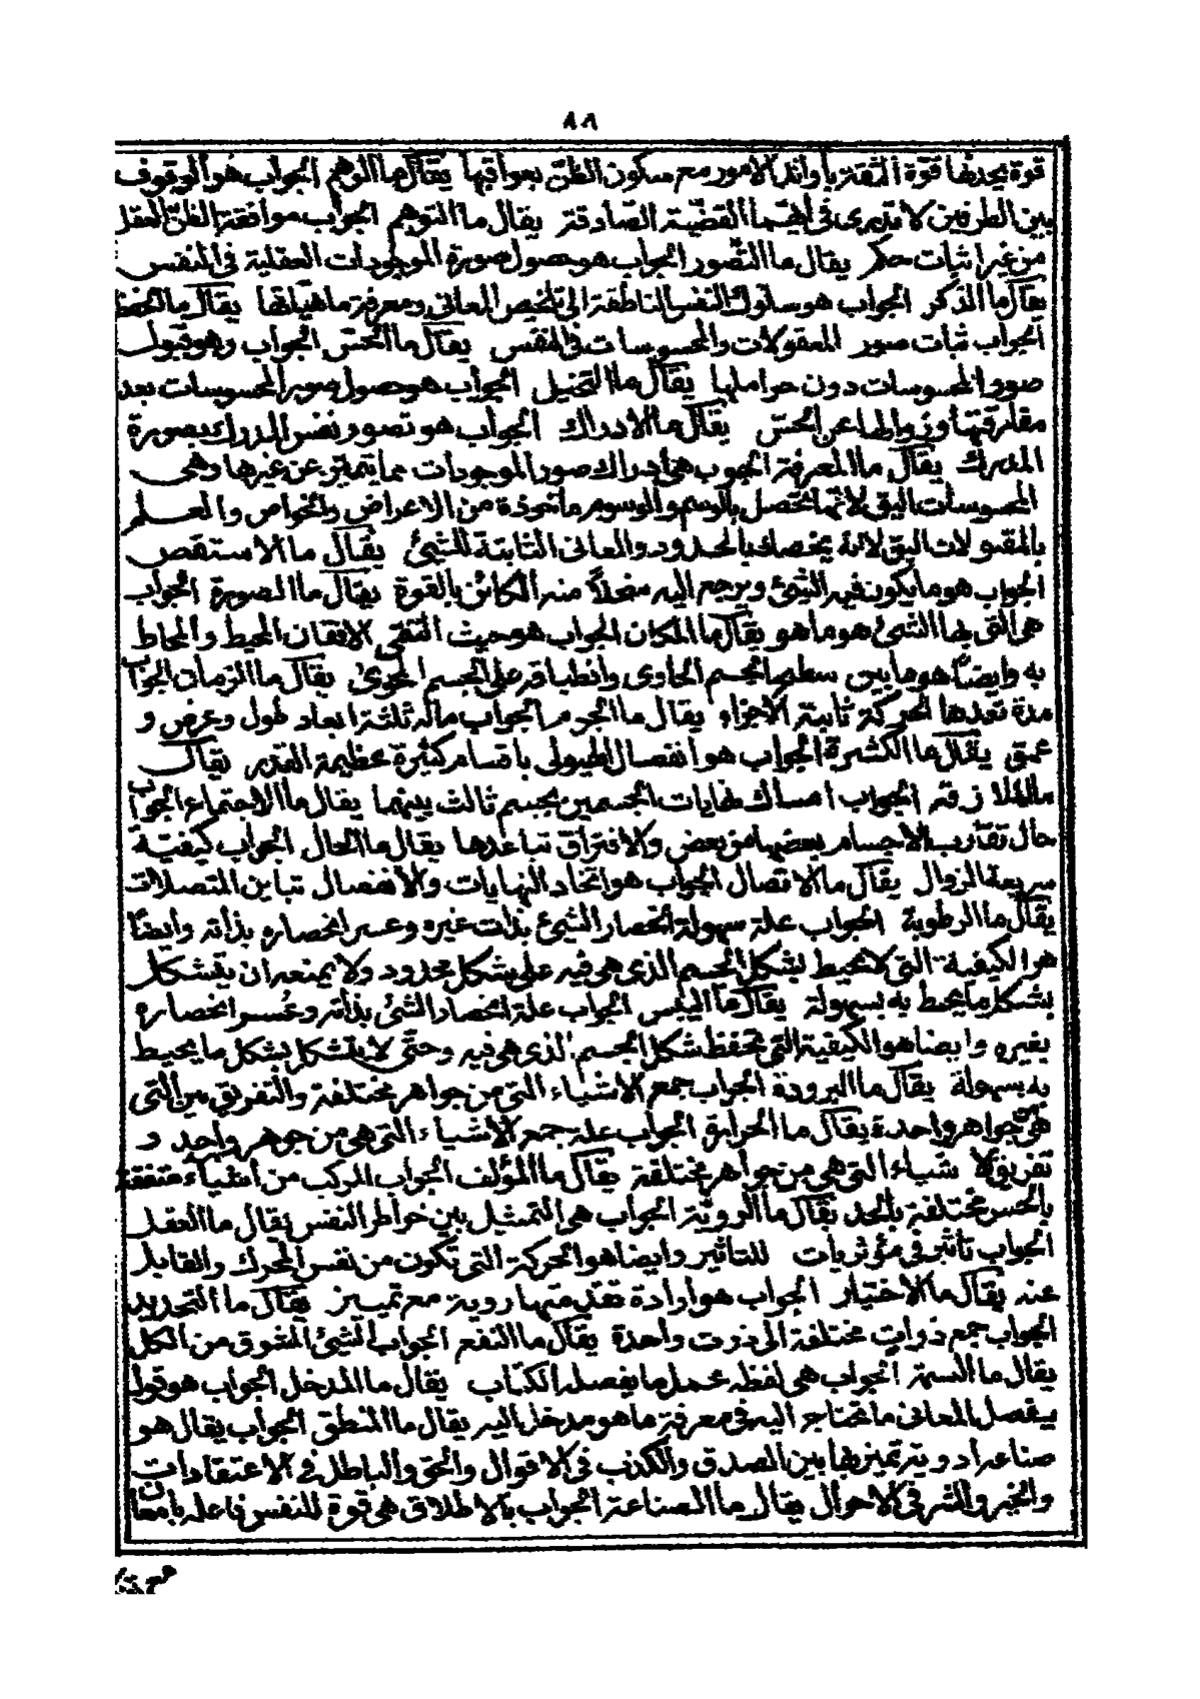 ٨٨
قوة يحدثها قوة الثقة بأوائل الامور مع سكون الظن بعواقبها يقال ما الوهم الجواب هو الوقوف
بين الطرفين لا يدرى فى أيهما القضية الصادقة يقال ما التوهم الجواب موافقة الظن العقل
من غير اثبات حكم يقال ما التصور الجواب هو حصول صورة الموجودات العقلية فى النفس
يقال ما الذكر الجواب هو سلوك النفس الناطقة الى تلخيص المعانى ومعرفة ماهياتها يقال ما الحفظ
الجواب ثبات صور المعقولات والمحسوسات فى النفس يقال ما الحس الجواب وهو قبول
صور المحسوسات دون حواملها يقال ما التخيل الجواب هو حصول صور المحسوسات بعد
مفارقتها وزوالها عن الحس يقال ما الادراك الجواب هو تصور نفس المدرك بصورة
المدرك يقال ما المعرفة الجوب هى أدراك صور الموجودات مما يتميز عن غيرها وهى
المحسوسات اليق لانها تحصل بالرسم والرسوم مأخوذة من الاعراض والخواص والعلم
بالمقولات اليق لانه يحصل بالحدود والمعانى الثابتة للشئ يقال ما الاستقص
الجواب هو ما يكون فيه الشئ ويرجع اليه منحلاً منه الكائن بالقوة يقال ما الصورة الجواب
هى التى بها الشئ هو ما هو يقال ما المكان الجواب هو حيث التقى الافقان المحيط والمحاط
به وايضاً هو ما بين سطح الجسم الحاوى وانطباقه على الجسم المحوى يقال ما الزمان الجواب
مدة تعدها الحركة ثابتة الاجزاء يقال ما الجرم الجواب ماله ثلثة ابعاد طول وعرض و
عمق يقال ما الكثرة الجواب هو انفصال الهيولى باقسام كثيرة عظيمة القدر يقال
ما الملازقة الجواب امساك نهايات الجسمين بجسم ثالث بينهما يقال ما الاجتماع الجواب
حال تقارب الاجسام بعضها من بعض والافتراق تباعدها يقال ما الحال الجواب كيفية
سريعة الزوال يقال ما الاتصال الجواب هو اتحاد النهايات والانفصال تباين المتصلات
يقال ما الرطوبة الجواب علة سهولة انحصار الشئ بذات غيره وعسر انحصاره بذاته وايضا
هو الكيفية التى لا تحيط بشكل الجسم الذى هى فيه على شكل محدود ولا يمنعه ان يتشكل
بشكل ما يحيط به بسهولة يقال ما اليبس الجواب علة انحصار الشئ بذاته وعسر انحصاره
بغيره وايضا هو الكيفية التى تحفظ شكل الجسم الذى هى فيه وحتى لا يتشكل بشكل ما يحيط
به بسهولة يقال ما البرودة الجواب جمع الاشياء التى من جواهر مختلفة والتفريق بين التى
هى جواهر واحدة يقال ما الحرارة الجواب علة جمع الاشياء التى هى من جوهر واحد و
تفريق الا شياء التى هى من جواهر مختلفة يقال ما المؤلف الجواب المركب من أشياء متفقة
بالحس مختلفة بالحد يقال ما الروية الجواب هى التمثيل بين خواطر النفس يقال ما العقل
الجواب تأثير فى مؤثريات للتاثير وايضا هو الحركة التى تكون من نفس المحرك والقابل
عنه يقال ما الاختيار الجواب هو ارادة تقدمتها روية مع تمييز يقال ما التحديد
الجواب جمع ذوات مختلفة الى ذرت واحدة يقال ما النفع الجواب الشئ المشوق من الكل
يقال ما السمة الجواب هى لفظه عمل ما يفصله الكتاب يقال ما المدخل الجواب هو قول
يفصل المعانى ما تحتاج اليه فى معرفة ما هو مدخل اليه يقال ما المنطق الجواب يقال هو
صناعة ادوية تميز بها بين الصدق والكذب فى الاقوال والحق والباطل فى الاعتقادات
والخير والشر فى الاحوال يقال ما الصناعة الجواب بالاطلاق هى قوة للنفس فاعلة بامعان